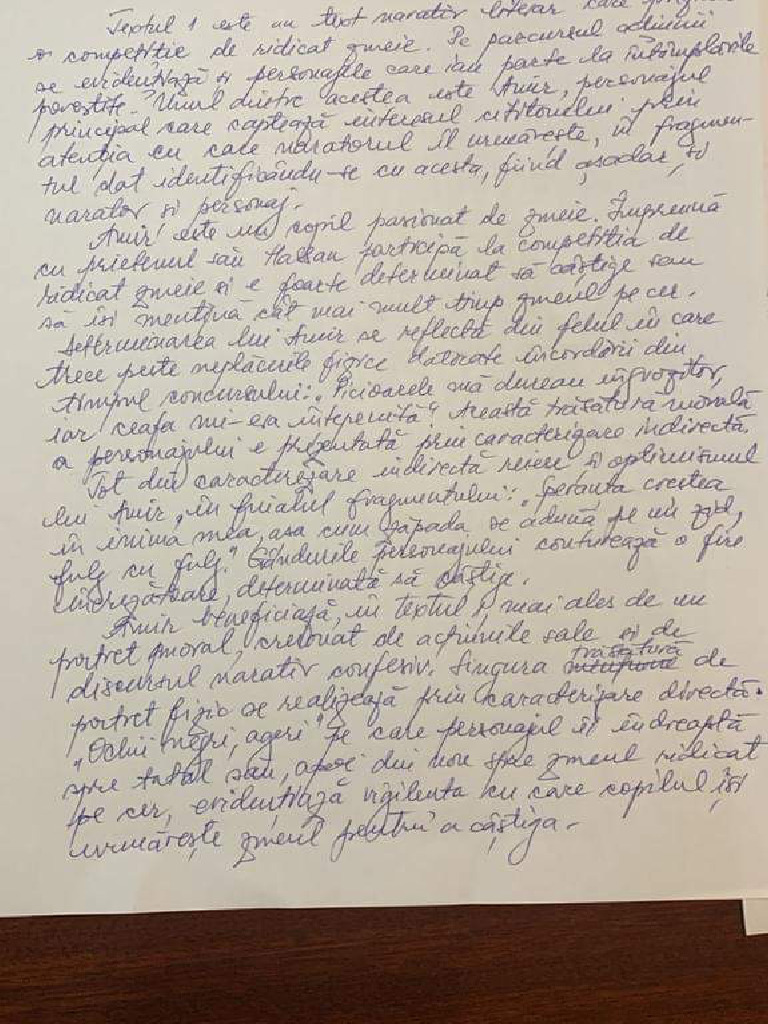 Textul 1 este un text narativ literar care
o competiție de ridicat zmeie. Pe parcursul acțiunii
se evidențiază și personajele care iau parte la întâmplările
povestite. Unul dintre acestea este Amir, personajul
principal care captează interesul cititorului prin
atenția cu care naratorul îl urmărește, în fragmen-
tul dat identificându-se cu acesta, fiind, așadar, și
narator și personaj.
Amir este un copil pasionat de zmeie. Împreună
cu prietenul său Hassan participă la competiția de
ridicat zmeie și e foarte determinat să câștige sau
să își mențină cât mai mult timp zmeul pe cer.
Determinarea lui Amir se reflectă din felul în care
trece peste neplăcerile fizice datorate încordării din
timpul concursului: "Picioarele mă dureau îngrozitor,
iar ceafa mi-era înțepenită". Această trăsătură morală
a personajului e prezentată prin caracterizare indirectă.
Tot din caracterizare indirectă reiese și optimismul
lui Amir, în finalul fragmentului: "Speranța creștea
în inima mea, așa cum zăpada se adună pe un zid,
fulg cu fulg." Gândurile personajului conturează o fire
încrezătoare, determinată să câștige.
Amir beneficiază, în textul 1, mai ales de un
portret moral, creionat de acțiunile sale și de
discursul narativ confesiv. Singura trăsătură de
portret fizic se realizează prin caracterizare directă.
"Ochii negri, ageri" pe care personajul îi îndreaptă
spre tatăl său, apoi din nou spre zmeul ridicat
pe cer, evidențiază vigilența cu care copilul își
urmărește zmeul pentru a câștiga.